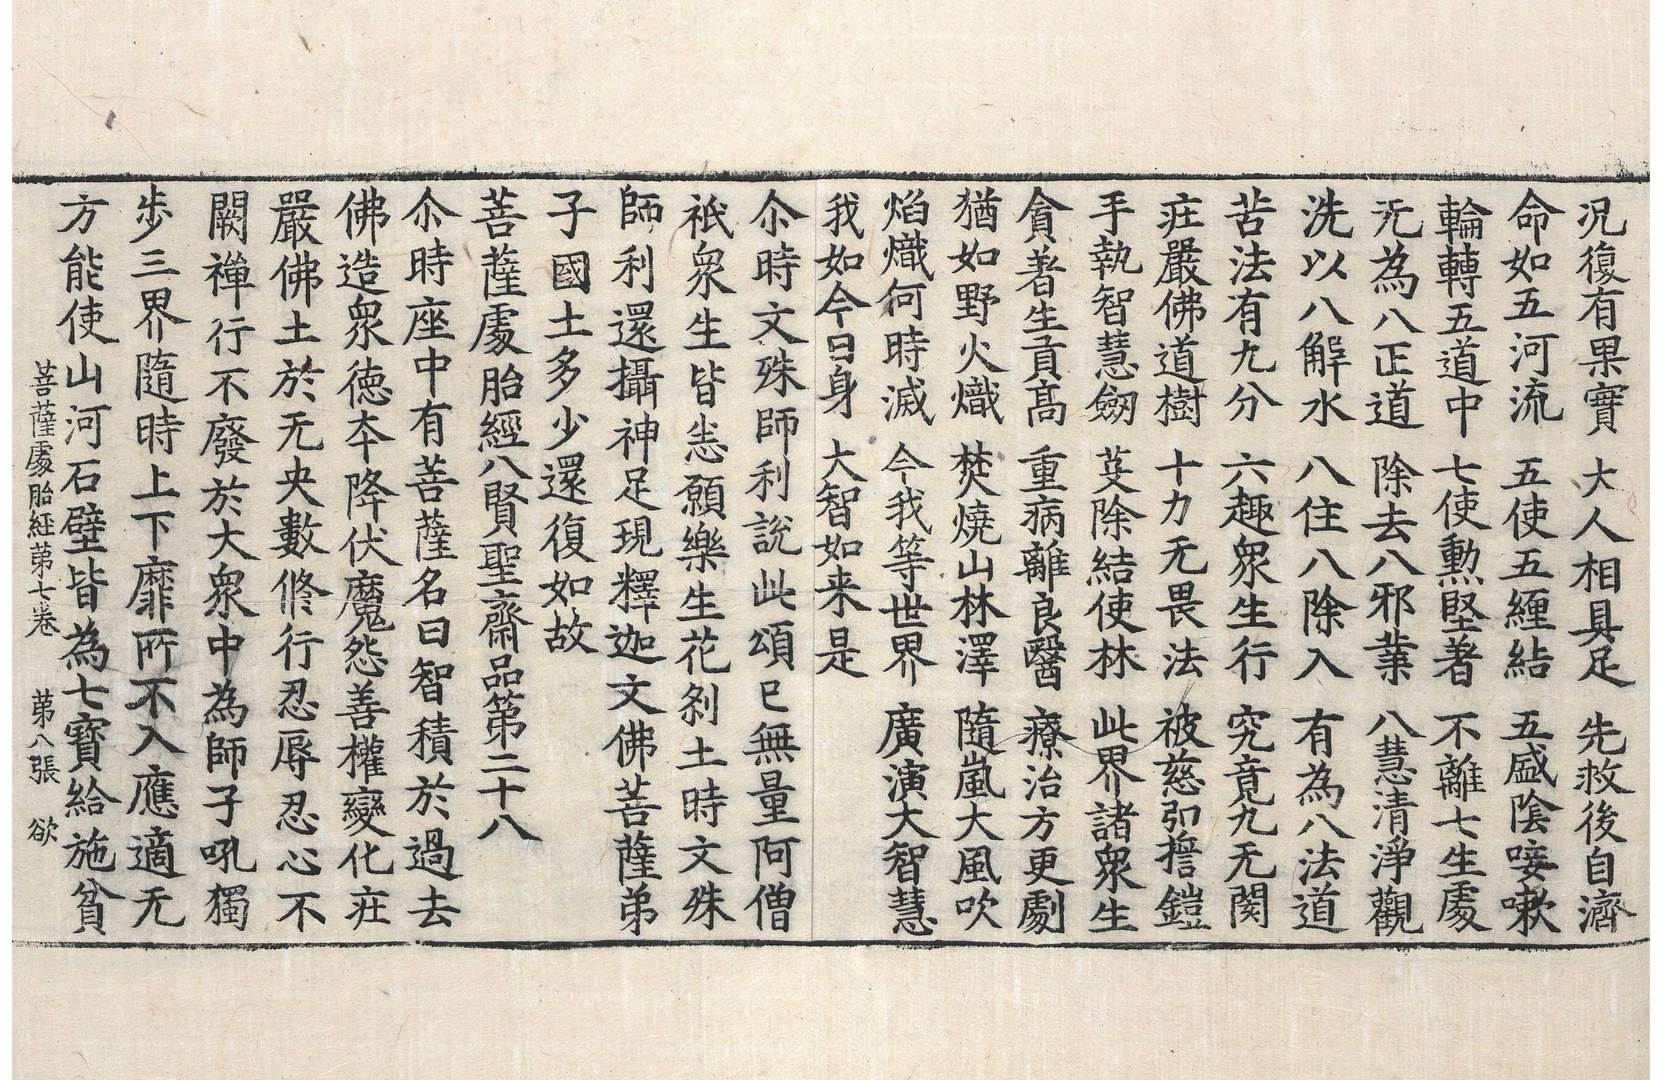 况復有果實 大人相具足 先救後自濟
命如五河流 五使五纏結 五盛陰唼嗽
輪轉五道中 七使勲堅著 不離七生處
无為八正道 除去八邪業 八慧清淨觀
洗以八解水 八住八除入 有為八法道
苦法有九分 六趣衆生行 究竟九无閡
疘嚴佛道樹 十力无畏法 被慈弘誓鎧
手執智慧劒 芟除結使林 此界諸衆生
貪著生貢髙 重病離良醫 療治方更劇
猶如野火熾 焚燒山林澤 隨嵐大風吹
焰熾何時滅 今我等世界 廣演大智慧
我如今日身 大智如来是
尒時文殊師利說此頌已無量阿僧
祇衆生皆悉願樂生花剎土時文殊
師利還攝神足現釋迦文佛菩薩弟
子國土多少還復如故
菩薩處胎經八賢聖齋品第二十八
尒時座中有菩薩名曰智積於過去
佛造衆徳夲降伏魔怨善權變化疘
嚴佛土於无央數修行忍辱忍心不
闕禪行不廢於大衆中為師子吼獨
步三界隨時上下靡所不入應適无
方能使山河石壁皆為七寳給施貧
菩薩處胎經第七卷 第八張 欲